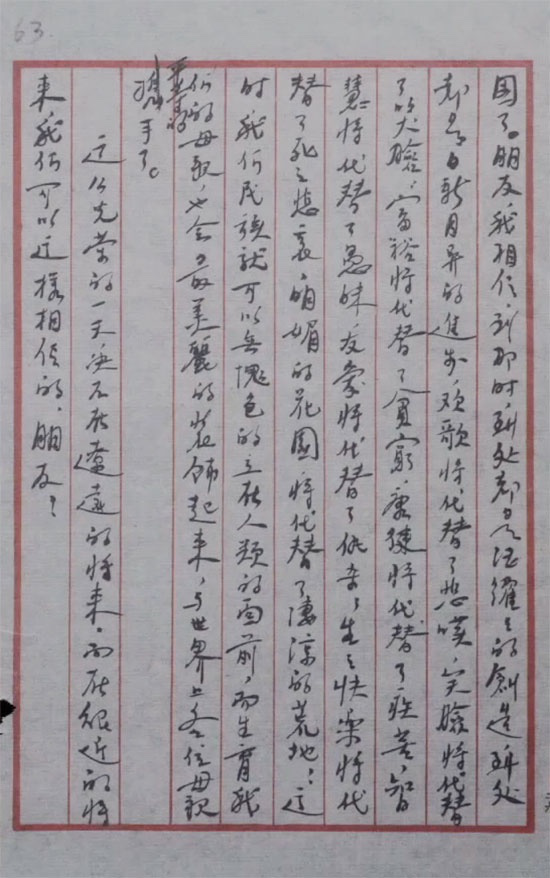 63.
国了。朋友，我相信，到那时，到处都是活耀々的創造，到处
都是日新月异的進步，欢歌将代替了悲嘆，笑臉将代替
了哭臉，富裕将代替了貧窮，康健将代替了疾苦，智
慧将代替了愚昧，友愛将代替了仇杀，生之快樂将代
替了死之悲哀，明媚的花園，将代替了凄凉的荒地！这
时，我们民族就可以無愧色的立在人類的面前，而生育我
们的母親，也会最美麗的装飾起来，与世界上各位母親
平等的携手了。
这么光荣的一天，决不在遼遠的将来，而在很近的将
来，我们可以这样相信的，朋友！